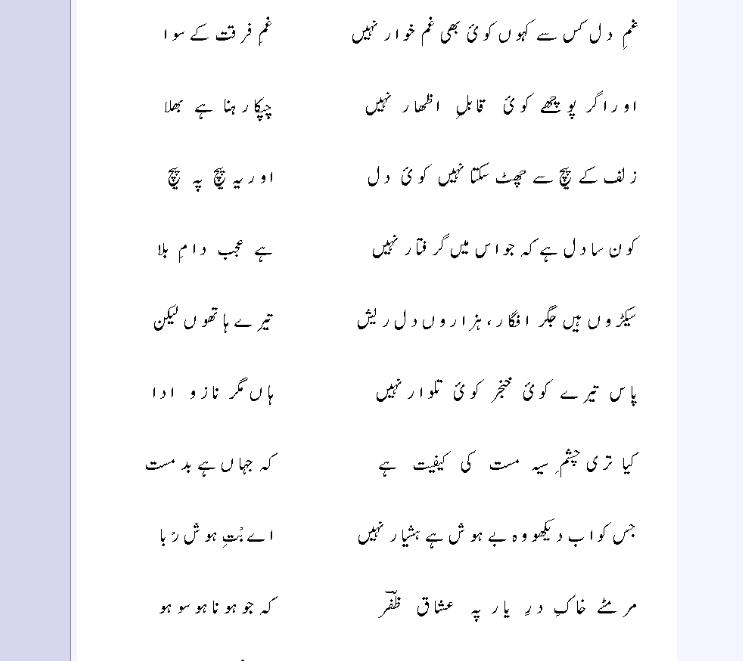 غمِ دل کس سے کہوں کوئ بھی غم خوار نہیں غمِ فرقت کے سوا
اور اگر پوچھے کوئ قابلِ اظہار نہیں چپکا رہنا ہے بھلا
زلف کے پیچ سے چھٹ سکتا نہیں کوئ دل اور یہ پیچ پہ پیچ
کون سا دل ہے کہ جو اس میں گرفتار نہیں ہے عجب دامِ بلا
سیکڑوں ہیں جگر افگار، ہزاروں دل ریش تیرے ہاتھوں لیکن
پاس تیرے کوئ خنجر کوئ تلوار نہیں ہاں مگر ناز و ادا
کیا تری چشمِ سیہ مست کی کیفیت ہے کہ جہاں ہے بد مست
جس کو اب دیکھو وہ بے ہوش ہے ہشیار نہیں اے بُتِ ہوش رُبا
مر مٹے خاکِ درِ یار پہ عشاق ظفرؔ کہ جو ہونا ہو سو ہو